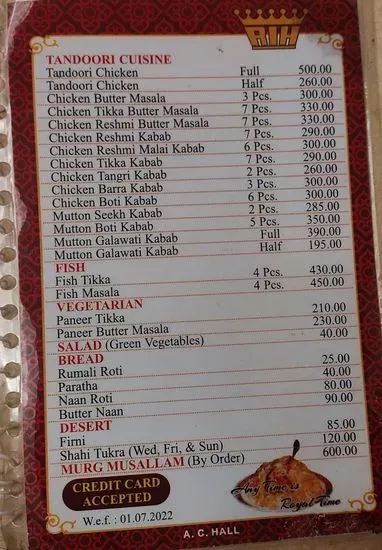 RIH
TANDOORI CUISINE
Tandoori Chicken Full 500.00
Tandoori Chicken Half 260.00
Chicken Butter Masala 3 Pcs. 300.00
Chicken Tikka Butter Masala 7 Pcs. 330.00
Chicken Reshmi Butter Masala 7 Pcs. 330.00
Chicken Reshmi Kabab 7 Pcs. 290.00
Chicken Reshmi Malai Kabab 6 Pcs. 300.00
Chicken Tikka Kabab 7 Pcs. 290.00
Chicken Tangri Kabab 2 Pcs. 260.00
Chicken Barra Kabab 3 Pcs. 300.00
Chicken Boti Kabab 6 Pcs. 300.00
Mutton Seekh Kabab 2 Pcs. 285.00
Mutton Boti Kabab 5 Pcs. 350.00
Mutton Galawati Kabab Full 390.00
Mutton Galawati Kabab Half 195.00
FISH
Fish Tikka 4 Pcs. 430.00
Fish Masala 4 Pcs. 450.00
VEGETARIAN
Paneer Tikka 210.00
Paneer Butter Masala 230.00
SALAD (Green Vegetables) 40.00
BREAD
Rumali Roti 25.00
Paratha 40.00
Naan Roti 80.00
Butter Naan 90.00
DESERT
Firni 85.00
Shahi Tukra (Wed, Fri, & Sun) 120.00
MURG MUSALLAM (By Order) 600.00
CREDIT CARD
ACCEPTED
Any Time is
Royal Time
W.e.f. : 01.07.2022
A. C. HALL